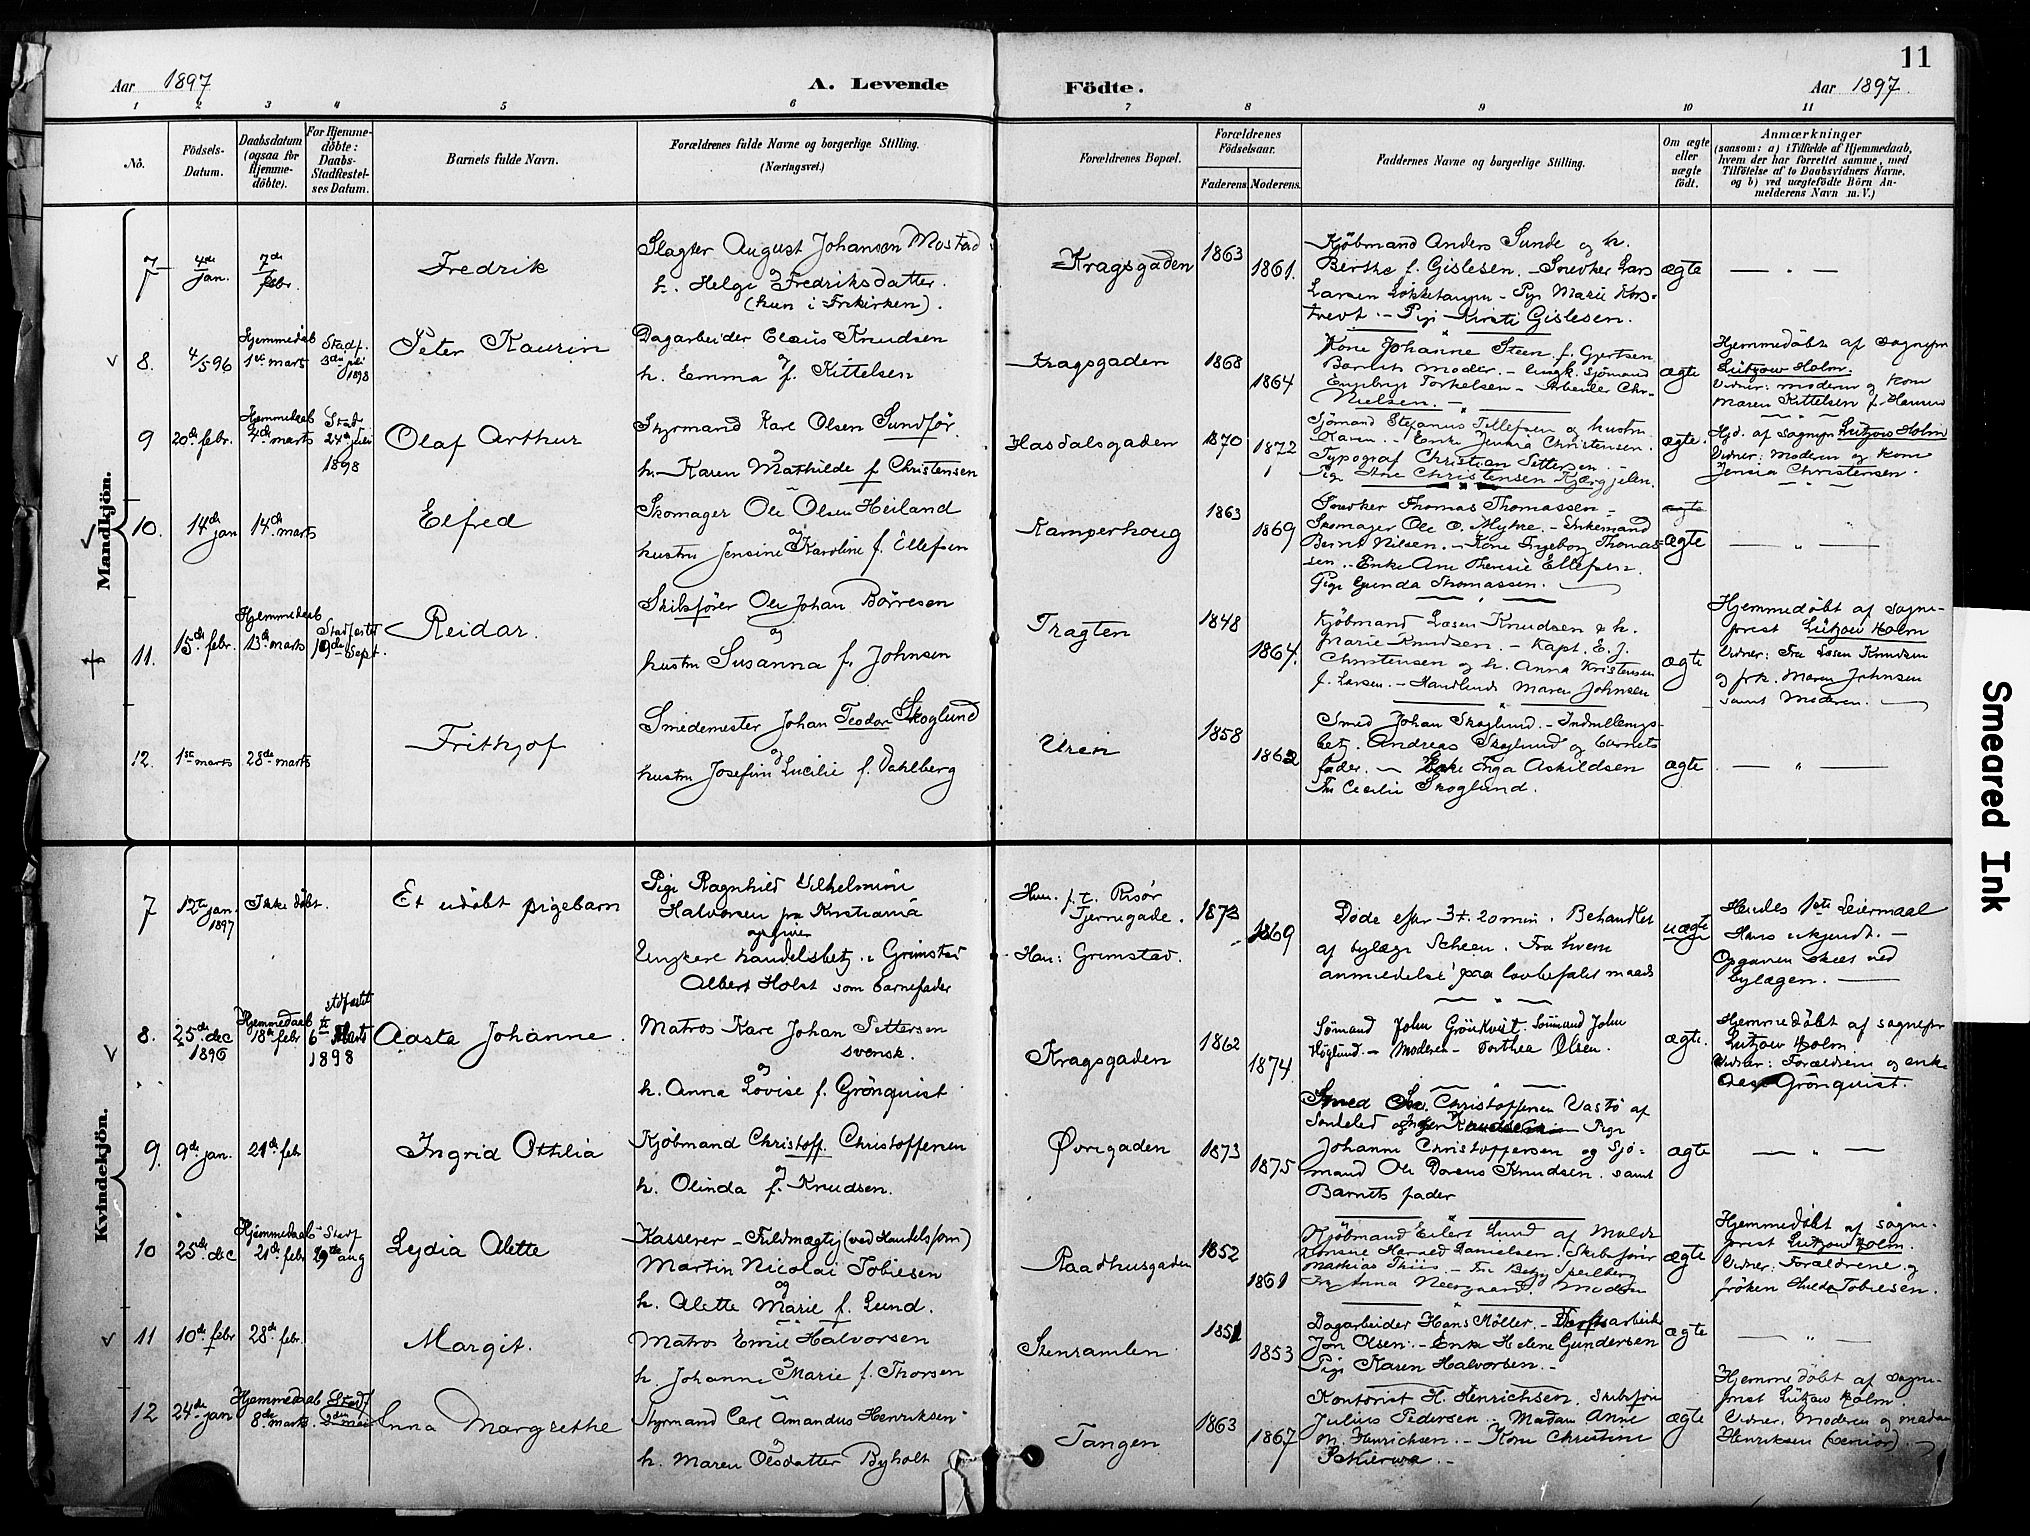 11
Aar 1897
A. Levende Födte.
Aar 1897.
1 2 3 4 5 6 7 8 9 10 11
Nô.
Födsels-Datum.
Daabsdatum (ogsaa for Hjemmedöbte).
For Hjemmedöbte: Daabs-Stadfæstelses Datum.
Barnets fulde Navn.
Forældrenes fulde Navne og borgerlige Stilling.
(Næringsvei.)
Forældrenes Bopæl.
Forældrenes Födselsaar.
Faderens. Moderens.
Faddernes Navne og borgerlige Stilling.
Om ægte eller uægte födt.
Anmærkninger
(saasom: a) i Tilfælde af Hjemmedaab, hvem der har forrettet samme, med Tilföielse af to Daabsvidners Navne, og b) ved uægtefödte Börn Anmelderens Navn m. V.)
Mandkjön.
7 4de jan. 7de febr. Fredrik
Slagter August Johansen Mostad
og
h. Helge Fredriksdatter.
(hun i Frikirken).
Kragsgaden 1863 1861.
Kjöbmand Anders Sunde og h.
Berthe f. Gislesen. - Snedker Lars
Larsen Lökketangen - Pige Marie
Pige Kirsti Gislesen.
ægte
8. 4/5 96 Hjemmedaab 1ste marts Stadf. 3die juli 1898 Peter Kaurin
Dagarbeider Claus Knudsen
og
h. Emma f. Kittelsen
Kragsgaden 1868 1864
Kone Johanne Steen f. Gjertsen
Barnets Moder. - Ungk. Sjömand
Engebrgt Torkelsen - Arbeider Chr.
Nielsen. -
ægte
Hjemmedöbt af sognepr
Lützow Holm.
Vidner: moderen og kone
Maren Kittelsen f. Hansen
9 20de febr. Hjemmedaab 7de marts Stadf 24de juli 1898 Olaf Arthur
Styrmand Karl Olsen Sundför.
h. Karen Mathilde f Christensen
Hasdalsgaden 1870 1872
Sjömand Stefanus Tellefsen og hustru
Karen. - Enke Jensia Christensen.
Typograf Christian Pettersen. -
Pige Christensen
ægte.
Hjd. af Sognepr Lützow Holm
Vidner: Moderen og kone
Jensia Christensen.
10. 14de jan 14de marts Elfred
Skomager Ole Olsen Heiland
og
hustru Jensine Karoline f. Ellefsen
Kamperhoug 1863 1869
Snedker Thomas Thomassen -
Skomager Ole O. Myhre. - Enkemand
Bernt Nilsen. - Kone Ingeborg Thomas-
sen. - Enke Ane Theresie Ellefsen.
Pige Gunda Thomassen.
ægte
ægte
11. 15de febr. Hjemmedaab 13de marts Stadfestet 19de Sept. Reidar.
Skibsförer Ole Johan Börresen
og
hustru Susanna f. Johnsen
Tragten 1848 1864.
Kjöbmand Lasen Knudsen & h.
Marie Knudsen. - Kapt. E. J.
Christensen og h. Anna Kristensen
f. Larsen. - Handlende Maren Johnsen
ægte
Hjemmedöbt af sogne-
prest Lützow Holm
Vidner: Fru Lasen Knudsen
og frk. Maren Johnsen
samt Moderen.
12. 1ste marts 28de marts Frithjof
Smedemester Johan Teodor Skoglund
og
hustru Josefine Lucilie f. Dahlberg
Uren 1858 1862
Smed Johan Skoglund. - Indrullerings-
betj. Andreas Skoglund og barnets
fader. - Enke Inga Askildsen
Frk Cecilie Skoglund.
ægte
Kvindekjön.
7 12te jan. 1897 Ikke döbt. Et udöbt pigebarn
Pige Ragnhild Vilhelmine
Halvorsen fra Kristiania
opgiver
Ungkarl handelsbetj. i Grimstad
Albert Holst som barnefader
Hun. f. t. Risör
Tjernegade.
Han: Grimstad.
1873 1869
Döde efter 3 t. 20 min. Behandlet
af bylæge Scheen. Fra hvem
anmeldelse paa lovbefalet maade
uægte
Hendes 1ste Leiermaal
Hans ukjendt. -
Opgaven skeet ved
bylægen.
8. 25de dec 1896 Hjemmedaab 18de febr stadfæstet 6te Marts 1898 Aasta Johanne.
Matros Karl Johan Pettersen
svensk.
og
h. Anna Lovise f. Grönquist
Kragsgaden 1862 1874.
Sömand John Grönkvist. Sömand John
Höglund. - Moderen - Dorthea Olsen.
ægte.
Hjemmedöbt af sognepr
Lützow Holm
Vidner: Forældrene og enke
Grönquist.
9. 9de jan. 21de feb Ingrid Ottilia
Kjöbmand Christoff. Christoffersen
og
h. Olinda f. Knudsen.
Øvregaden 1873 1875
Smed Christoffersen Vastö af
Söndeled og Pige
Johanne Christoffersen og Sjö-
mand Ole Dorens Knudsen. samt
Barnets fader
ægte
10 25de dec Hjemmedaab 21de febr Stadf 29de aug Lydia Alette
Kasserer - Fuldmægtig (ved Handelsfirm)
Martin Nicolai Tobiesen
og
h. Alette Marie f. Lund.
Raadhusgaden 1852 1861
Kjöbmand Eilert Lund af Molde
Konsul Harald Danielsen. Skibsförer
Mathias Thiis. - Fru Betzy Speilberg
Fru Anna Neergaard. Moderen
ægte
Hjemmedöbt af sogne-
prest Lützow Holm.
Vidner: Forældrene og
fröken Hulda Tobiesen.
11 10de febr 28de febr. Margit.
Matros Emil Halvorsen
og
h. Johanne Marie f. Thorsen
Stensramlen. 1851 1853
Dagarbeider Hans Möller. -
Jon Olsen. - Enke Helene Gundersen
Pige Karen Halvorsen. -
ægte
12 24de jan Hjemmedaab 8de marts Stadf 2den mai Anna Margrethe
Styrmand Carl Amandus Henriksen
og
h. Maren Olsdatter Byholt
Tangen 1863 1867
Kontorist H. Henrichsen. Skibsförer
Julius Pedersen. Madam Anne
M. Henrichsen. - Kone Christine
ægte
Hjemmedöbt af Sogne-
prest Lützow Holm.
Vidner. Moderen og madam
Henriksen (senior).
Smeared Ink